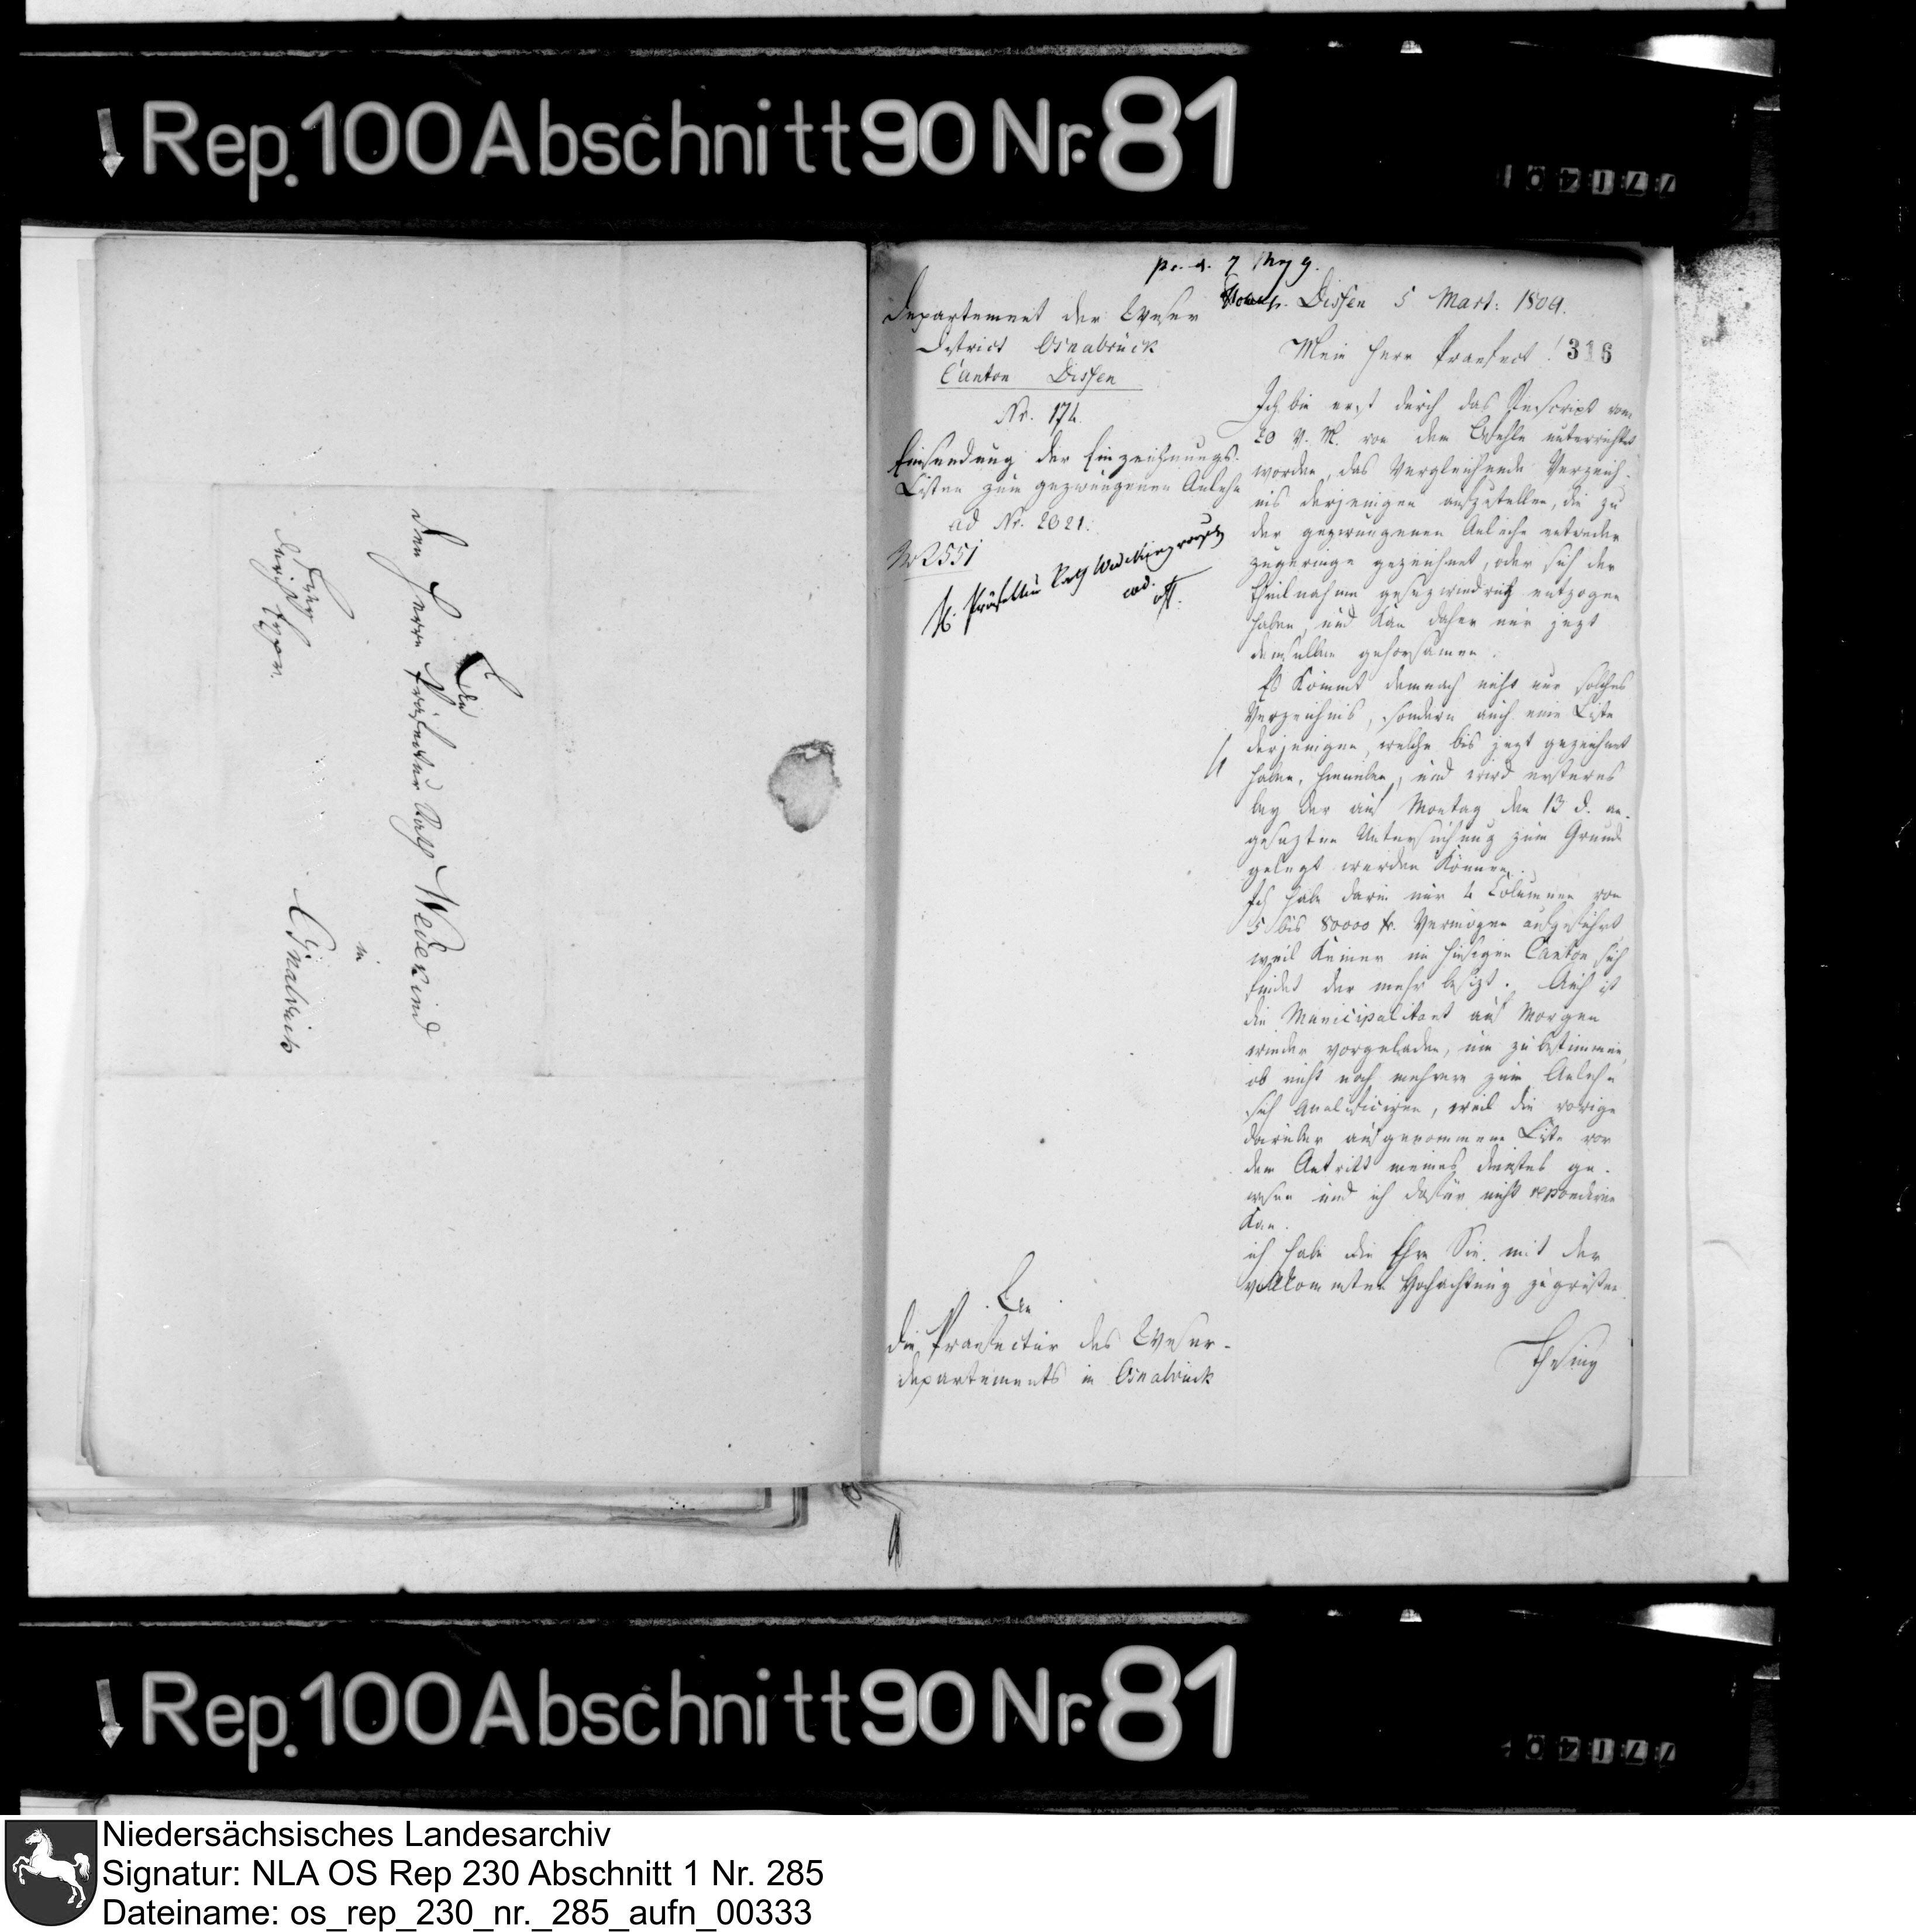 Rep. 100 Abschnitt 90 Nr. 81
An
den Herrn Präfectur Rath Wedekind
in
Osnabrück
Frey
durch Expr.
316
Dissen 5 Mart: 1809.
Departement der Weser
District Osnabrück
Canton Dissen
Nr. 174.
Einsendung der Einzeichnungs-
Listen zum gezwungenen Anlehn
ad Nr. 2321.
No 2551
H. Präfectur Rath Wedekind
Mein Herr Praefect!
Ich bin erst durch das Rescript vom
20 v. M. von dem Befehle unterrichtet
worden, das Vergleichende Verzeich-
nis derjenigen aufzustellen, die zu
der gezwungenen Anleihe entweder
zu geringe gezeichnet, oder sich der
Theilnahme gesezwiedrig entzogen
haben, und kan daher nur jezt
demselben gehorsamen.
Es kommt demnach nicht nur solches
Verzeichnis, sondern auch eine Liste
derjenigen, welche bis jezt gezeichnet
haben, hieneben, und wird ersteres
bey der auf Montag den 13 d. an-
gesezten Untersuchung zum Grunde
gelegt werden können.
Ich habe darin nur 4 Columnen von
5 bis 80000 fr. Vermögen aufgeführt,
weil Keiner im hiesigen Canton sich
findet der mehr besizt. Auch ist
die Municipalitaet auf Morgen
wieder vorgeladen, um zu bestimmen,
ob nicht noch mehrere zum Anlehn
sich qualificiren, weil die vorige
darüber aufgenommene Liste vor
dem Antritt meines Dienstes ge-
wesen und ich dafür nicht respondiren
kan.
ich habe die Ehre Sie mit der
vollkommsten Hochachtung zu grüßen.
Thesing
An
die Praefectur des Weser-
departements in Osnabrück
Rep. 100 Abschnitt 90 Nr. 81
Niedersächsisches Landesarchiv
Signatur: NLA OS Rep 230 Abschnitt 1 Nr. 285
Dateiname: os_rep_230_nr._285_aufn_00333